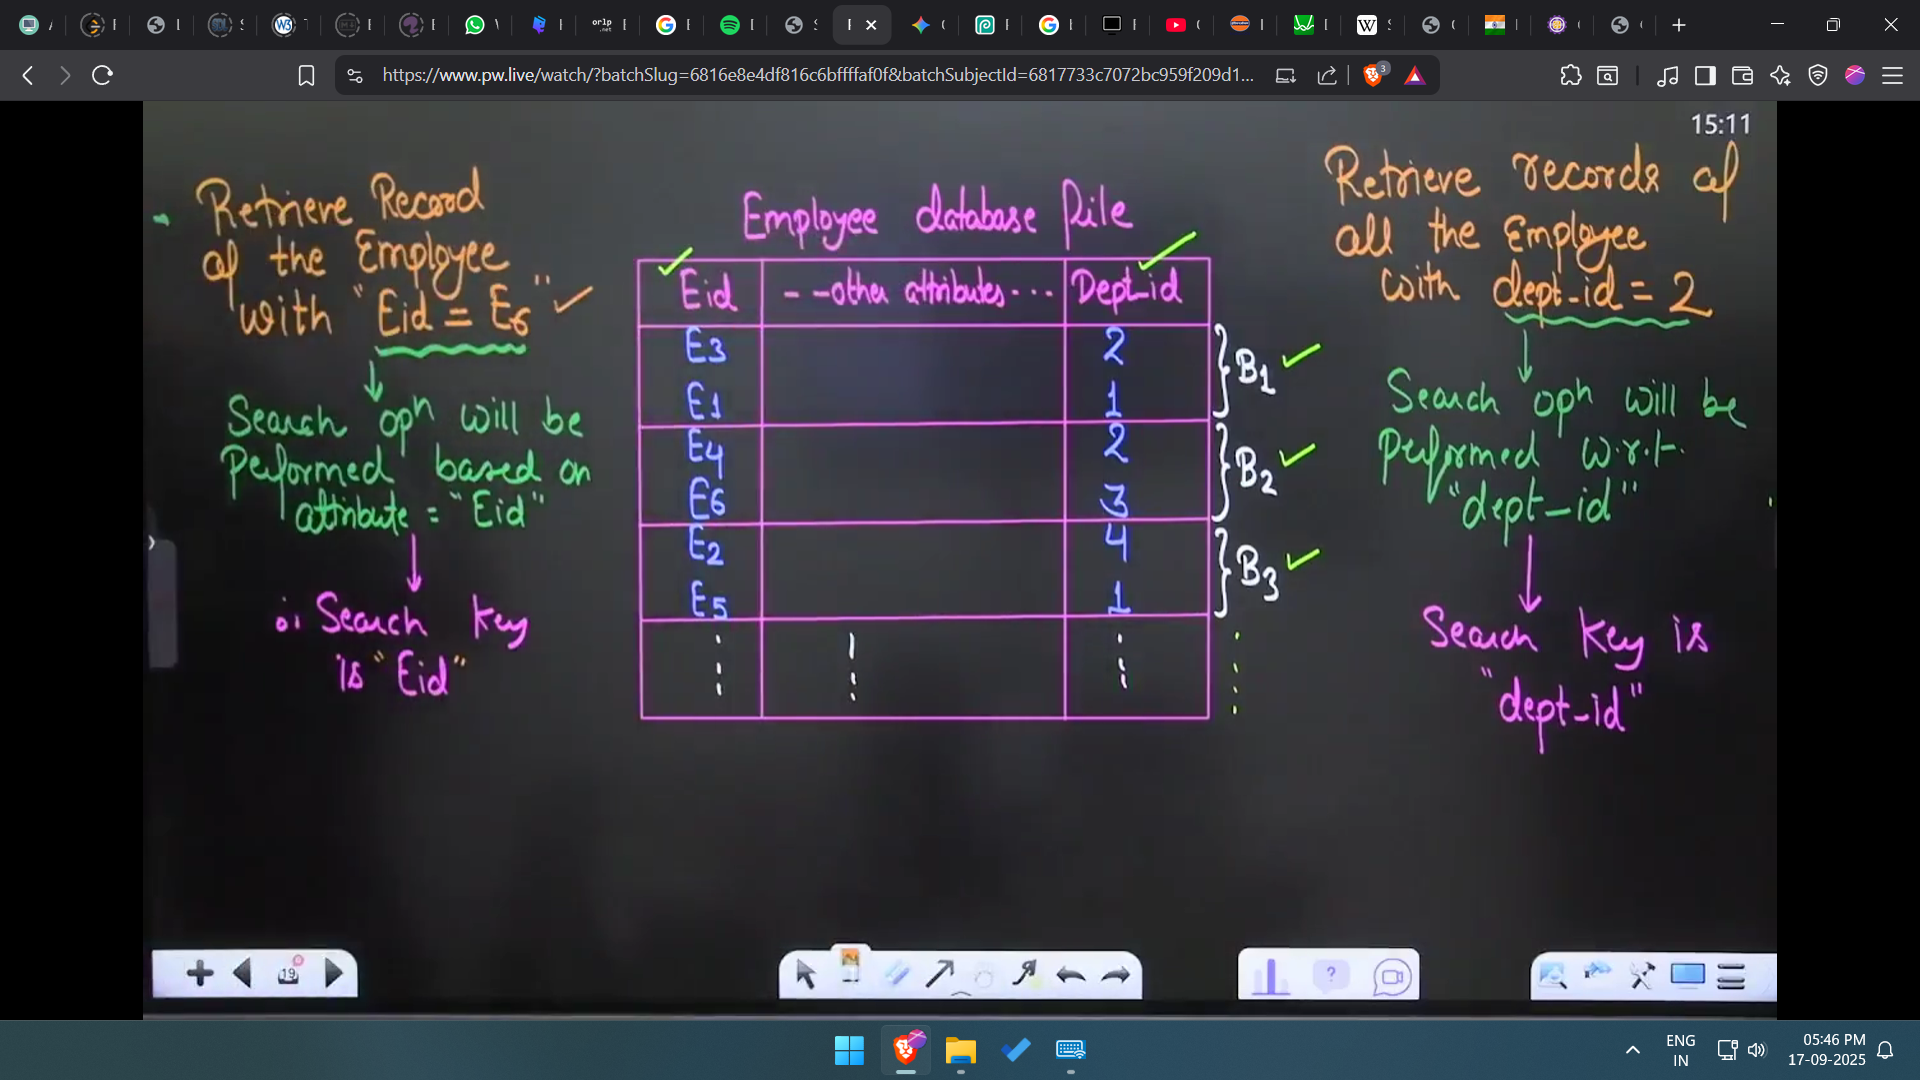 https://www.pw.live/watch/?batchSlug=6816e8e4df816c6bffffaf0f&batchSubjectId=6817733c7072bc959f209d1...
3
15:11
Retrieve Record
of the Employee
with "Eid = E6"
Search opn will be
performed based on
attribute = "Eid"
∴ Search key
is "Eid"
Employee database file
Eid - - other attributes - - - Dept_id
E3 2
E1 1
B1
E4 2
E6 3
B2
E2 4
E5 1
B3
Retrieve records of
all the Employee
with dept-id = 2
Search opn will be
performed w.r.t.
"dept-id"
Search key is
"dept-id"
19
?
ENG
IN
05:46 PM
17-09-2025